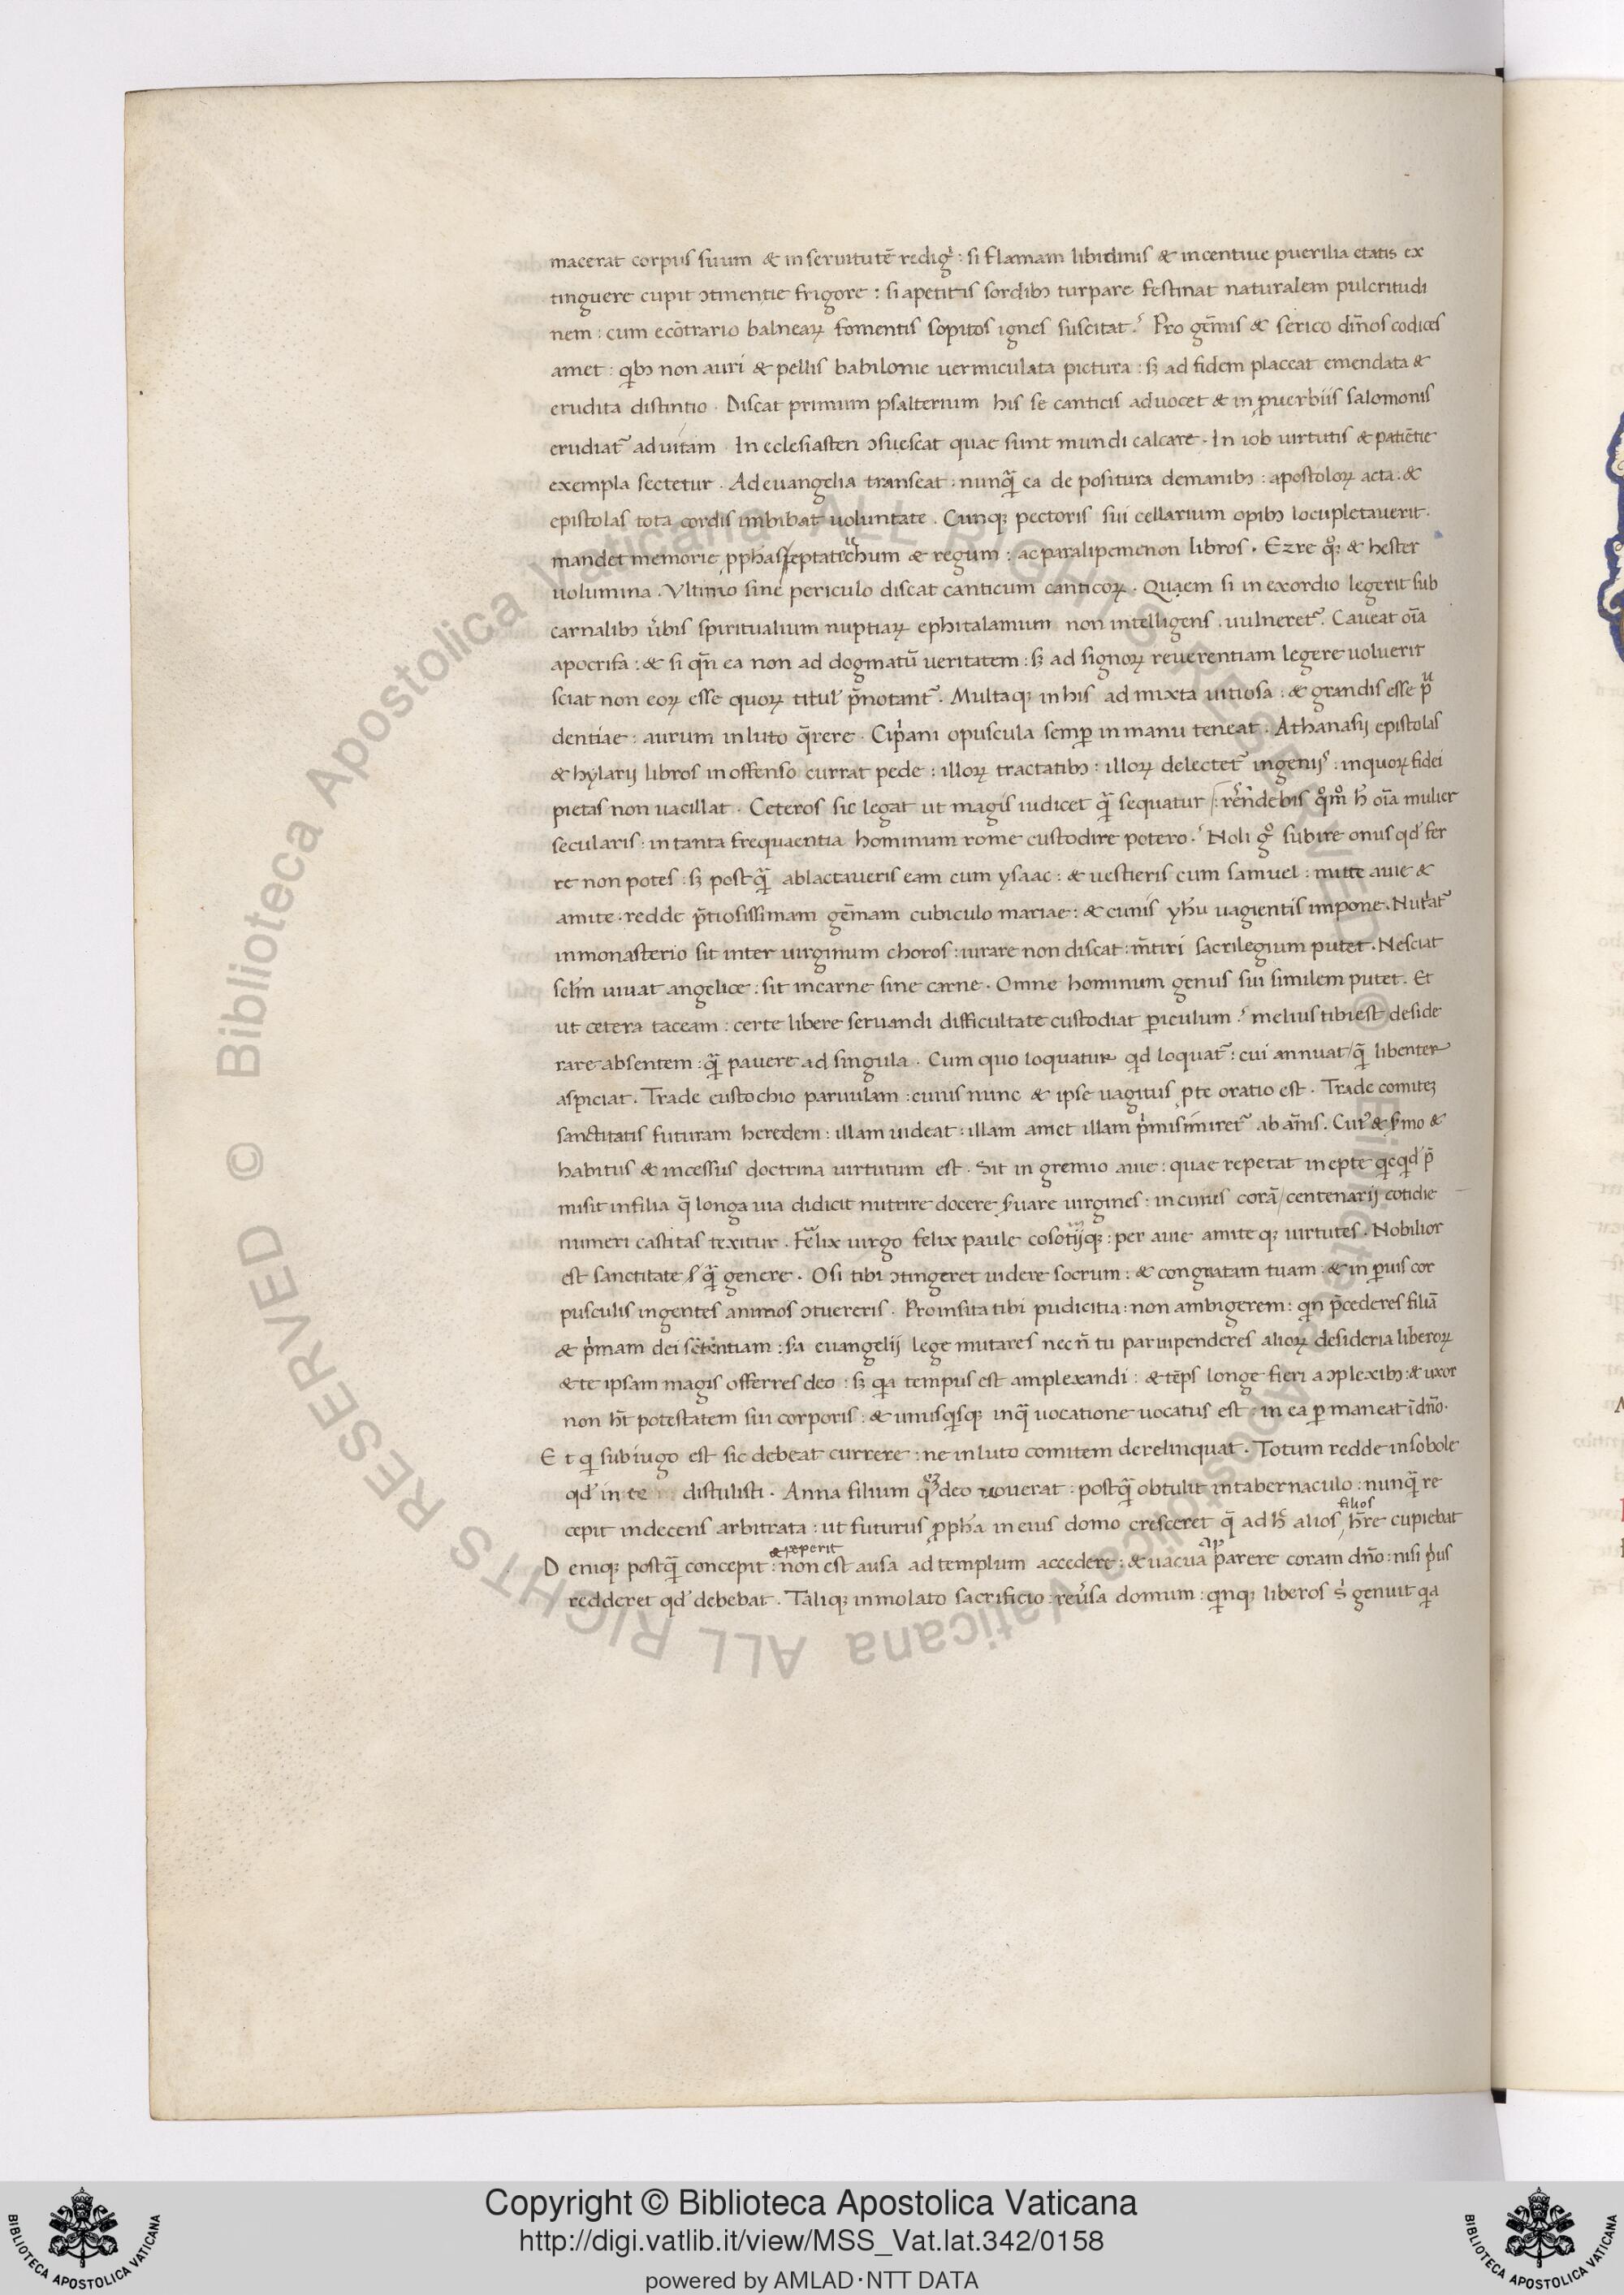 macerat corpus suum & in seruitutē redigẜ : si flamam libidinis & incentiue puerilia etatis ex
tinguere cupit ↄtinentie frigore : si apetitis sordibꝫ turpare festinat naturalem pulcritudi
nem : cum ecōtrario balnearꝝ fomentis sopitos ignes suscitat. Pro gēmis & serico diīnos codices
amet : qͥbꝫ non auri & pellis babilonie uermiculata pictura : sꝫ ad fidem placeat emendata &
erudita distintio . Discat primum psalterium his se canticis aduocet & in ꝓuerbiis salomonis
erudiat᷑ ad uitam . In eclesiasten ↄsuescat quae sunt mundi calcare . In iob uirtutis & patiētie
exempla sectetur . Ad euangelia transeat : nunqͣ̄ ea de positura demanibꝫ : apostolorꝝ acta : &
epistolas tota cordis imbibat uoluntate . Cunqꝫ pectoris sui cellarium opibꝫ locupletauerit .
mandet memorie ꝓphas / eptatecͧhum & regum : ac paralipemenon libros . Ezre qͦꝫ & hester
uolumina . Vltimo sine periculo discat canticum canticorꝝ . Quaem si in exordio legerit sub
carnalibꝫ u̾bis spiritualium nuptiarꝝ ephitalamium non intelligens . uulneret᷑ . Caueat oīa
apocrifa : & si qn̄ ea non ad dogmatū ueritatem : sꝫ ad signorꝝ reuerentiam legere uoluerit
sciat non eorꝝ esse quorꝝ titul᷒ p̄notant᷑ . Multaqꝫ in his ad mixta uitiosa : & grandis esse pͧ
dentiae : aurum in luto q̄rere . Cip̾ani opuscula semꝑ in manu teneat . Athanasij epistolas
& hylarij libros in offenso currat pede : illorꝝ tractatibꝫ : illorꝝ delectet᷑ ingenijs : in quorꝝ fidei
pietas non uacillat . Ceteros sic legat ut magis iudicet qͣ̄ sequatur : rēndebis qͦmͦ h̄ oīa mulier
secularis : in tanta frequaentia hominum rome custodire potero . Noli gͦ subire onus qd᷒ fer
re non potes : sꝫ postqͣ̄ ablactaueris eam cum ysaac : & uestieris cum samuel : mitte auie &
amite . redde p̄tiosissimam gēmam cubiculo mariae : & cunis yhū uagientis impone . Nut̾at᷑
in monasterio sit inter uirginum choros : iurare non discat : m̄tiri sacrilegium putet . Nesciat
sclm̄ uiuat angelice : sit in carne sine carne . Omne hominum genus sui similem putet . Et
ut cetera taceam : certe libere seruandi difficultate custodiat ꝑiculum . melius tibi est deside
rare absentem : qͣ̄ pauere ad singula . Cum quo loquatur qd loquat᷑ : cui annuat / qͣ̄ libenter
aspiciat . Trade eustochio paruulam : cuius nunc & ipse uagitus ꝓ te oratio est . Trade comitez
sanctitatis futuram heredem : illam uideat : illam amet illam p̾mis miret᷑ ab ānis . Cui᷒ & ẜmo &
habitus & incessus doctrina uirtutum est . Sit in gremio auie : quae repetat in epte qͥcqͥd p̄
misit in filia q̄ longa uia didicit nutrire docere ẜuare uirgines : in cuius corā / centenarij cotidie
numeri castitas texitur . Felix uirgo felix paule cosotijqꝫ : per auie amite qꝫ uirtutes . Nobilior
est sanctitate qͣ̄ genere . O si tibi ↄtingeret uidere socrum : & congnatam tuam : & in ꝑuis cor
pusculis ingentes animos ↄtuereris . Pro insita tibi pudicitia : non ambigerem : qͥn p̄cederes filiā
& p̾mam dei sētentiam : sͣa euangelij lege mutares nec n̄ tu paruipenderes aliorꝝ desideria liberorꝝ
& te ipsam magis offerres deo : sꝫ qͥa tempus est amplexandi : & tēps longe fieri a ↄplexibꝫ : & uxor
non ht̄ potestatem sui corporis : & unusqͥsqꝫ inqͣ̄ uocatione uocatus est : in ea ꝑ maneat ī dn̄o .
Et qͥ sub iugo est sic debeat currere : ne in luto comitem derelinquat . Totum redde in sobole
qd᷒ in te distulisti . Anna filium qͤꝫ deo uouerat : postqͣ̄ obtulit in tabernaculo : nunqͣ̄ re
cepit indecens arbitrata : ut futurus ꝓpha in eius domo cresceret q̄ ad h᷒ alios filios h̄re cupiebat
Deniqꝫ postqͣ̄ concepit : & peperit non est ausa ad templum accedere : & uacua ap parere coram dn̄o : nisi p̾us
redderet qd᷒ debebat . Taliqꝫ inmolato sacrificio : reu̾sa domum : qͥnqꝫ liberos ẜ genuit qͥa
Copyright © Biblioteca Apostolica Vaticana
http://digi.vatlib.it/view/MSS_Vat.lat.342/0158
powered by AMLAD·NTT DATA
BIBLIOTECA APOSTOLICA VATICANA
BIBLIOTECA APOSTOLICA VATICANA
© Biblioteca Apostolica Vaticana ALL RIGHTS RESERVED © Biblioteca Apostolica Vaticana ALL RIGHTS RESERVED